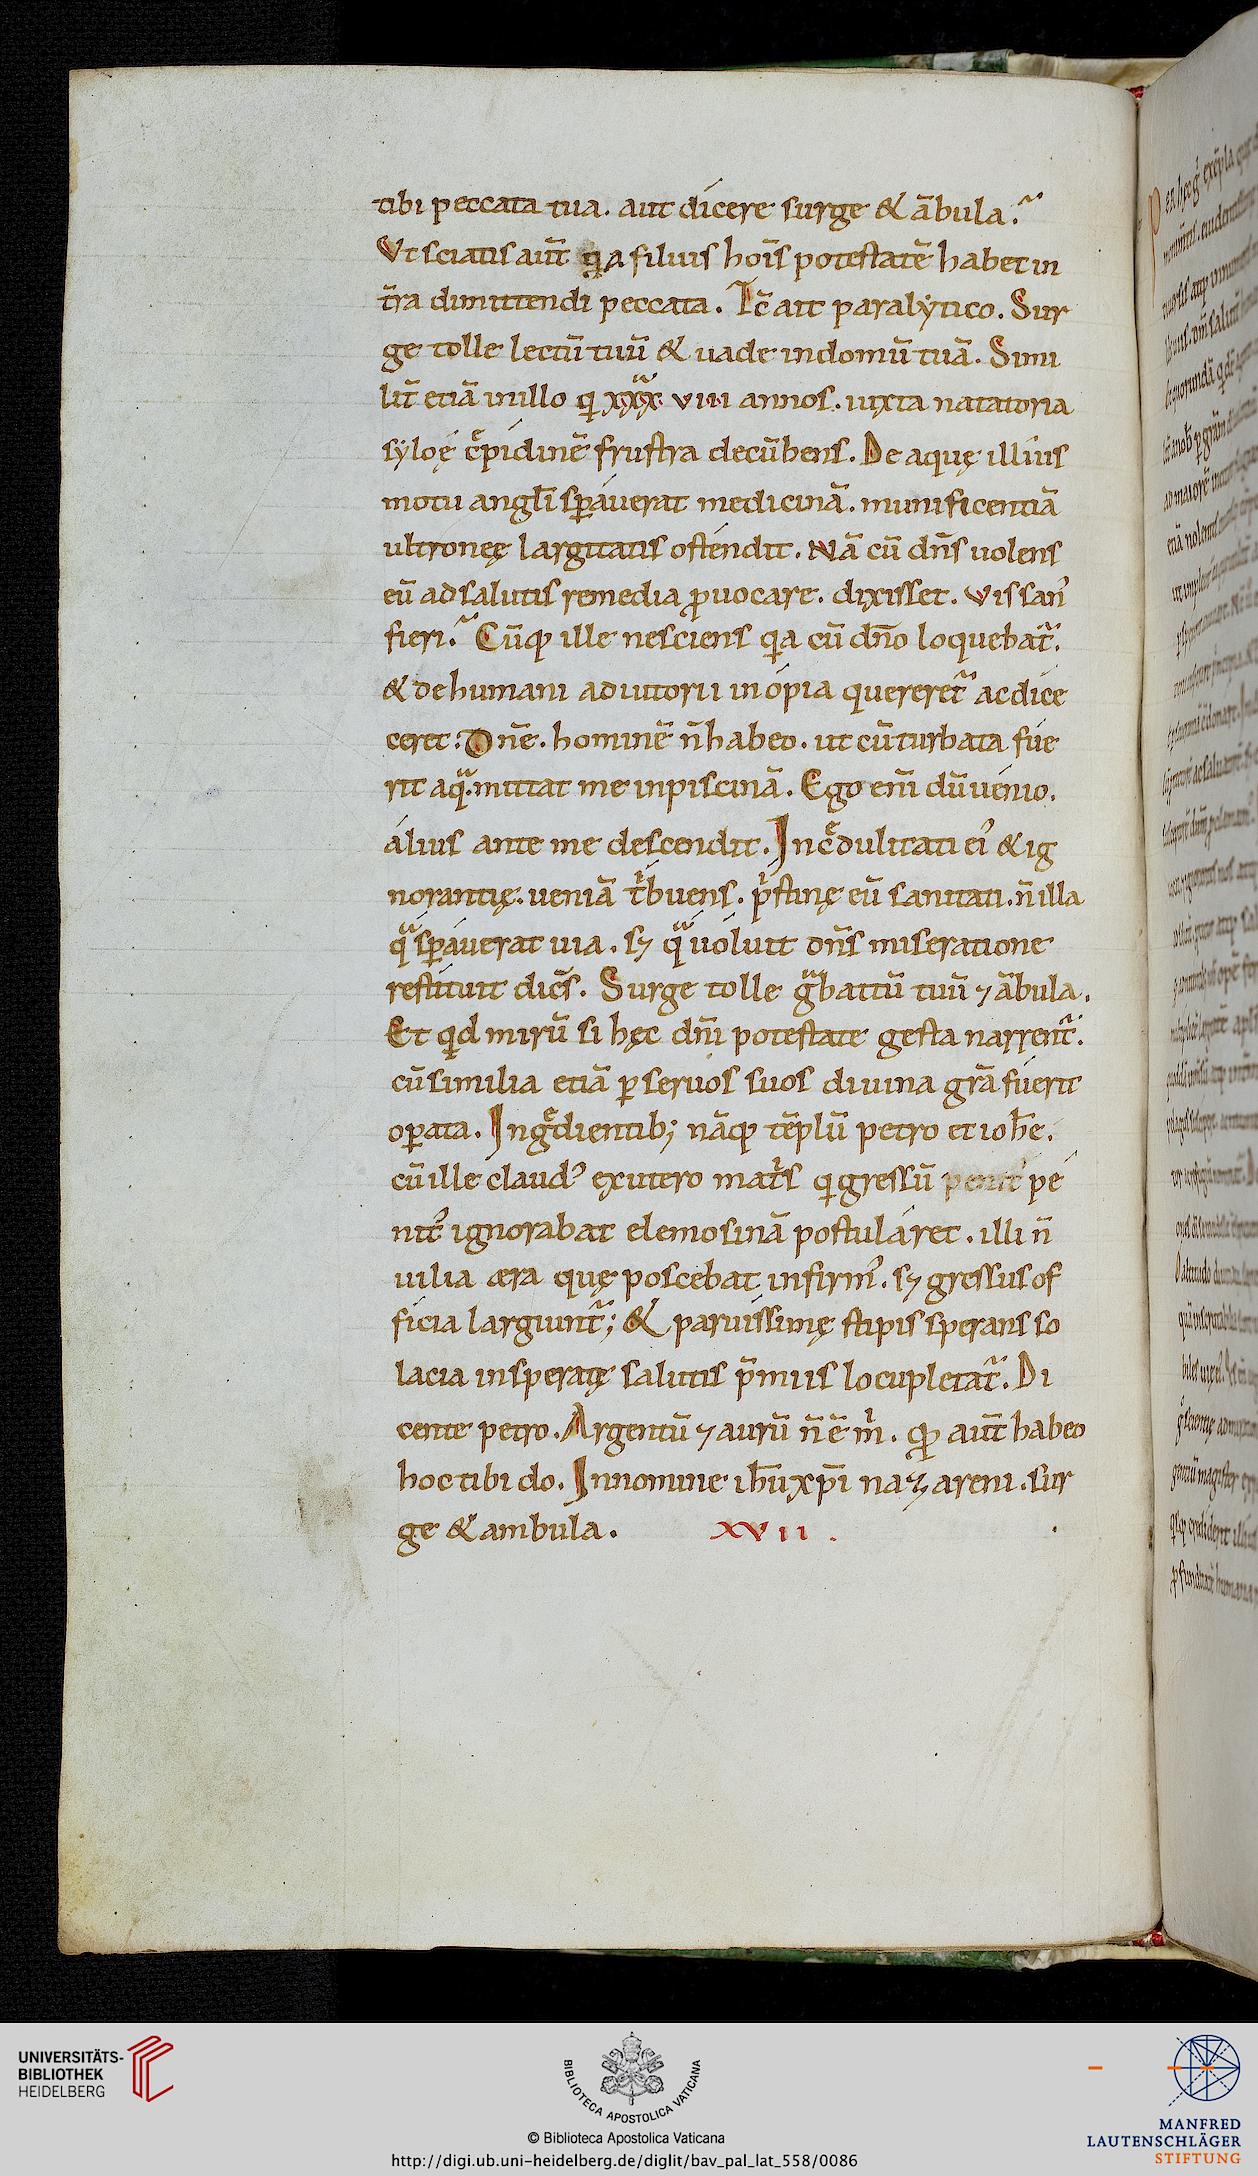 tibi peccata tua. aut dicere surge & ābula.
Vt sciatis aut̄ qa filius hoīs potestatē habet in
t̄ra dimittendi peccata. Tc̄ ait paralẏtico. Sur
ge tolle lectū tuū & uade indomū tuā. Simi
lit̄ etiā inillo qi xxxͣ viii annos. iuxta natatoria
sẏloę c̄pidinē frustra decūbens. De aquę illius
motu angli sꝑauerat medicinā. munificentiā
ultronęę largitatis ostendit. Nā cū dn̄s uolens
eū adsalutis remedia ꝓuocare. dixisset. Vis sanꝰ
fieri. Cūqꝫ ille nesciens qa cū dn̄o loquebat̄.
& dehumani adiutorii inopia quereret̄ ac dice
ceret. Dn̄e. hominē n̄ habeo. ut cū turbata fue
rit aqͣ. mittat me inpiscinā. Ego eni̅ dū uenio.
alius ante me descendit. Incͤdulitati eiꝰ & ig
norantię. ueniā tͥbuens. pͥstinę eū sanitati. n̄ illa
qͣ sꝑauerat uia. sꝫ qͣ uoluit dn̄s miseratione
restituit dicēs. Surge tolle gͣbattū tuū ⁊ ābula.
Et qͥd mirū si hęc dn̄i potestate gesta narrent̄.
cū similia etiā ꝑ seruos suos diuina grā fuerit
oꝑata. Ingͤdientibꝫ nāqꝫ tēplū petro et iohe̅.
cū ille claudꝰ exutero matͥs qi gressū penit pe
nitꝰ ignorabat elemosinā postularet. illi n̄
uilia æra quę poscebat infirmꝰ. sꝫ gressus of
ficia largiunt̄; & paruissimę stipis sperans so
lacia insperatę salutis p̄miis locupletat̄. Di
cente petro. Argentū ⁊ aurū n̄ ē mͥ. qꝫ aut̄ habeo
hoc tibi do. Innomine ih̄u xp̄i nazareni. sur
ge & ambula. XVII.
UNIVERSITÄTS-
BIBLIOTHEK
HEIDELBERG
BIBLIOTECA APOSTOLICA VATICANA
© Biblioteca Apostolica Vaticana
http://digi.ub.uni-heidelberg.de/diglit/bav_pal_lat_558/0086
MANFRED
LAUTENSCHLÄGER
STIFTUNG